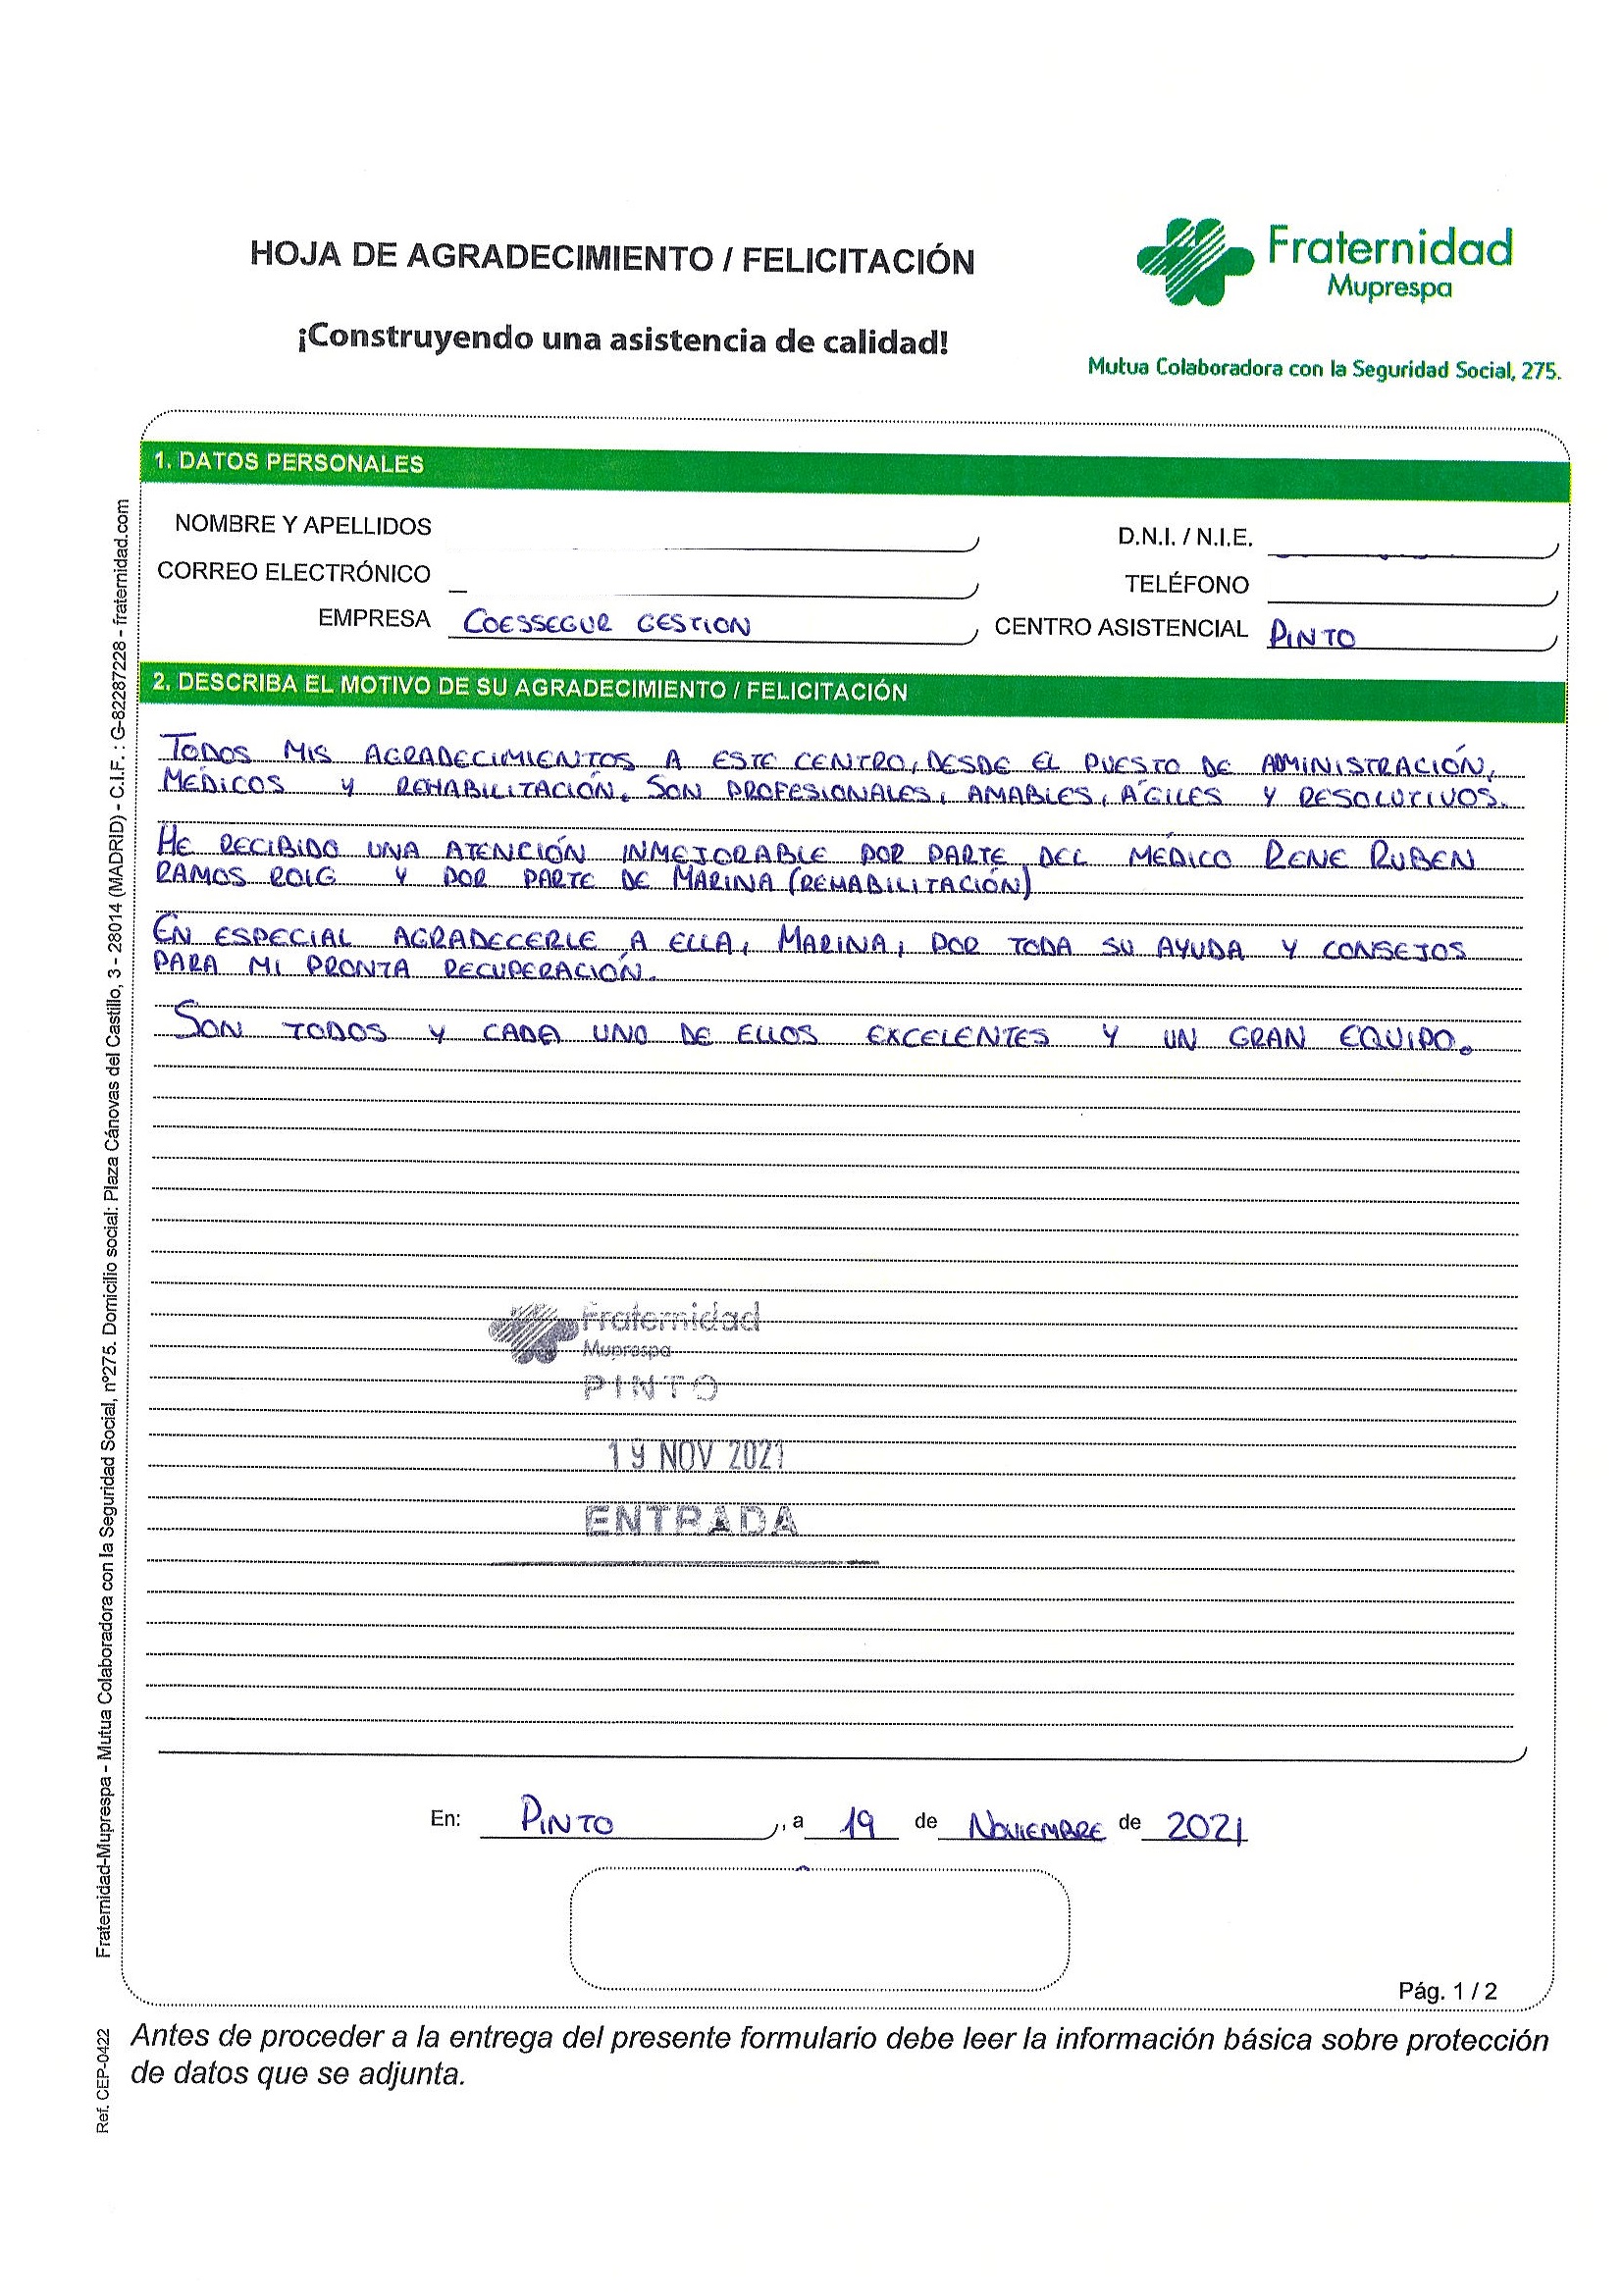 HOJA DE AGRADECIMIENTO / FELICITACIÓN
¡Construyendo una asistencia de calidad!
Fraternidad
Muprespa
Mutua Colaboradora con la Seguridad Social, 275.
1. DATOS PERSONALES
NOMBRE Y APELLIDOS
D.N.I. / N.I.E.
CORREO ELECTRÓNICO
TELÉFONO
EMPRESA COESSEGUR GESTION
CENTRO ASISTENCIAL PINTO
2. DESCRIBA EL MOTIVO DE SU AGRADECIMIENTO / FELICITACIÓN
TODOS MIS AGRADECIMIENTOS A ESTE CENTRO, DESDE EL PUESTO DE ADMINISTRACIÓN,
MÉDICOS Y REHABILITACIÓN. SON PROFESIONALES, AMABLES, ÁGILES Y RESOLUTIVOS.
HE RECIBIDO UNA ATENCIÓN INMEJORABLE POR PARTE DEL MÉDICO RENE RUBEN
RAMOS ROIG Y POR PARTE DE MARINA (REHABILITACIÓN)
EN ESPECIAL AGRADECERLE A ELLA, MARINA, POR TODA SU AYUDA Y CONSEJOS
PARA MI PRONTA RECUPERACIÓN.
SON TODOS Y CADA UNO DE ELLOS EXCELENTES Y UN GRAN EQUIPO.
Fraternidad
Muprespa
PINTO
19 NOV 2021
ENTRADA
En: PINTO, a 19 de NOVIEMBRE de 2021
Pág. 1 / 2
Antes de proceder a la entrega del presente formulario debe leer la información básica sobre protección
de datos que se adjunta.
Fraternidad-Muprespa - Mutua Colaboradora con la Seguridad Social, nº275. Domicilio social: Plaza Cánovas del Castillo, 3 - 28014 (MADRID) - C.I.F. : G-82287228 - fraternidad.com
Ref. CEP-0422